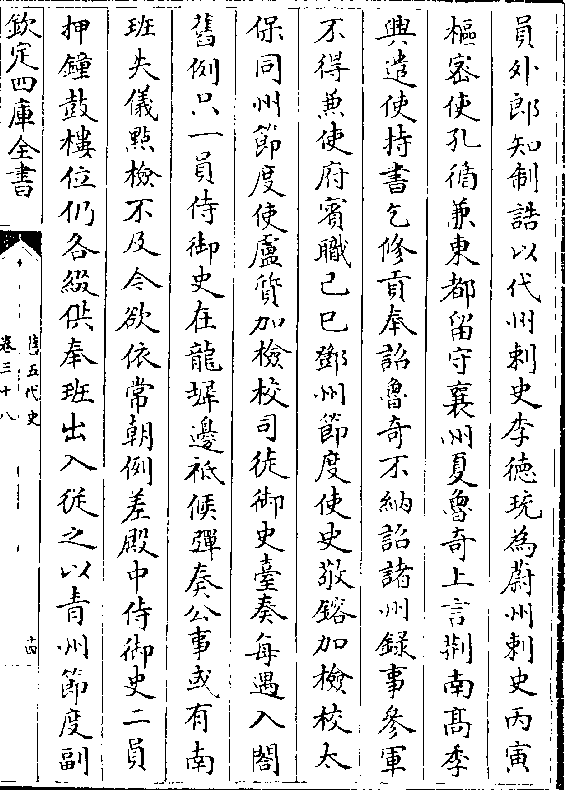 員外郎知制誥以代州刺史李德珫為蔚州刺史丙寅
樞密使孔循兼東都留守襄州夏魯奇上言荆南髙季
興遣使持書乞修貢奉詔魯奇不納詔諸州錄事參軍
不得兼使府賓職己巳鄧州節度使史敬鎔加檢校太
保同州節度使盧質加檢校司徒御史臺奏每遇入閤
舊例只一員侍御史在龍墀邊祗候彈奏公事或有南
班失儀㸃檢不及今欲依常朝例差殿中侍御史二員
押鐘鼓樓位仍各綴供奉班出入從之以青州節度副
欽定四庫全書
舊五代史
卷三十八
十四